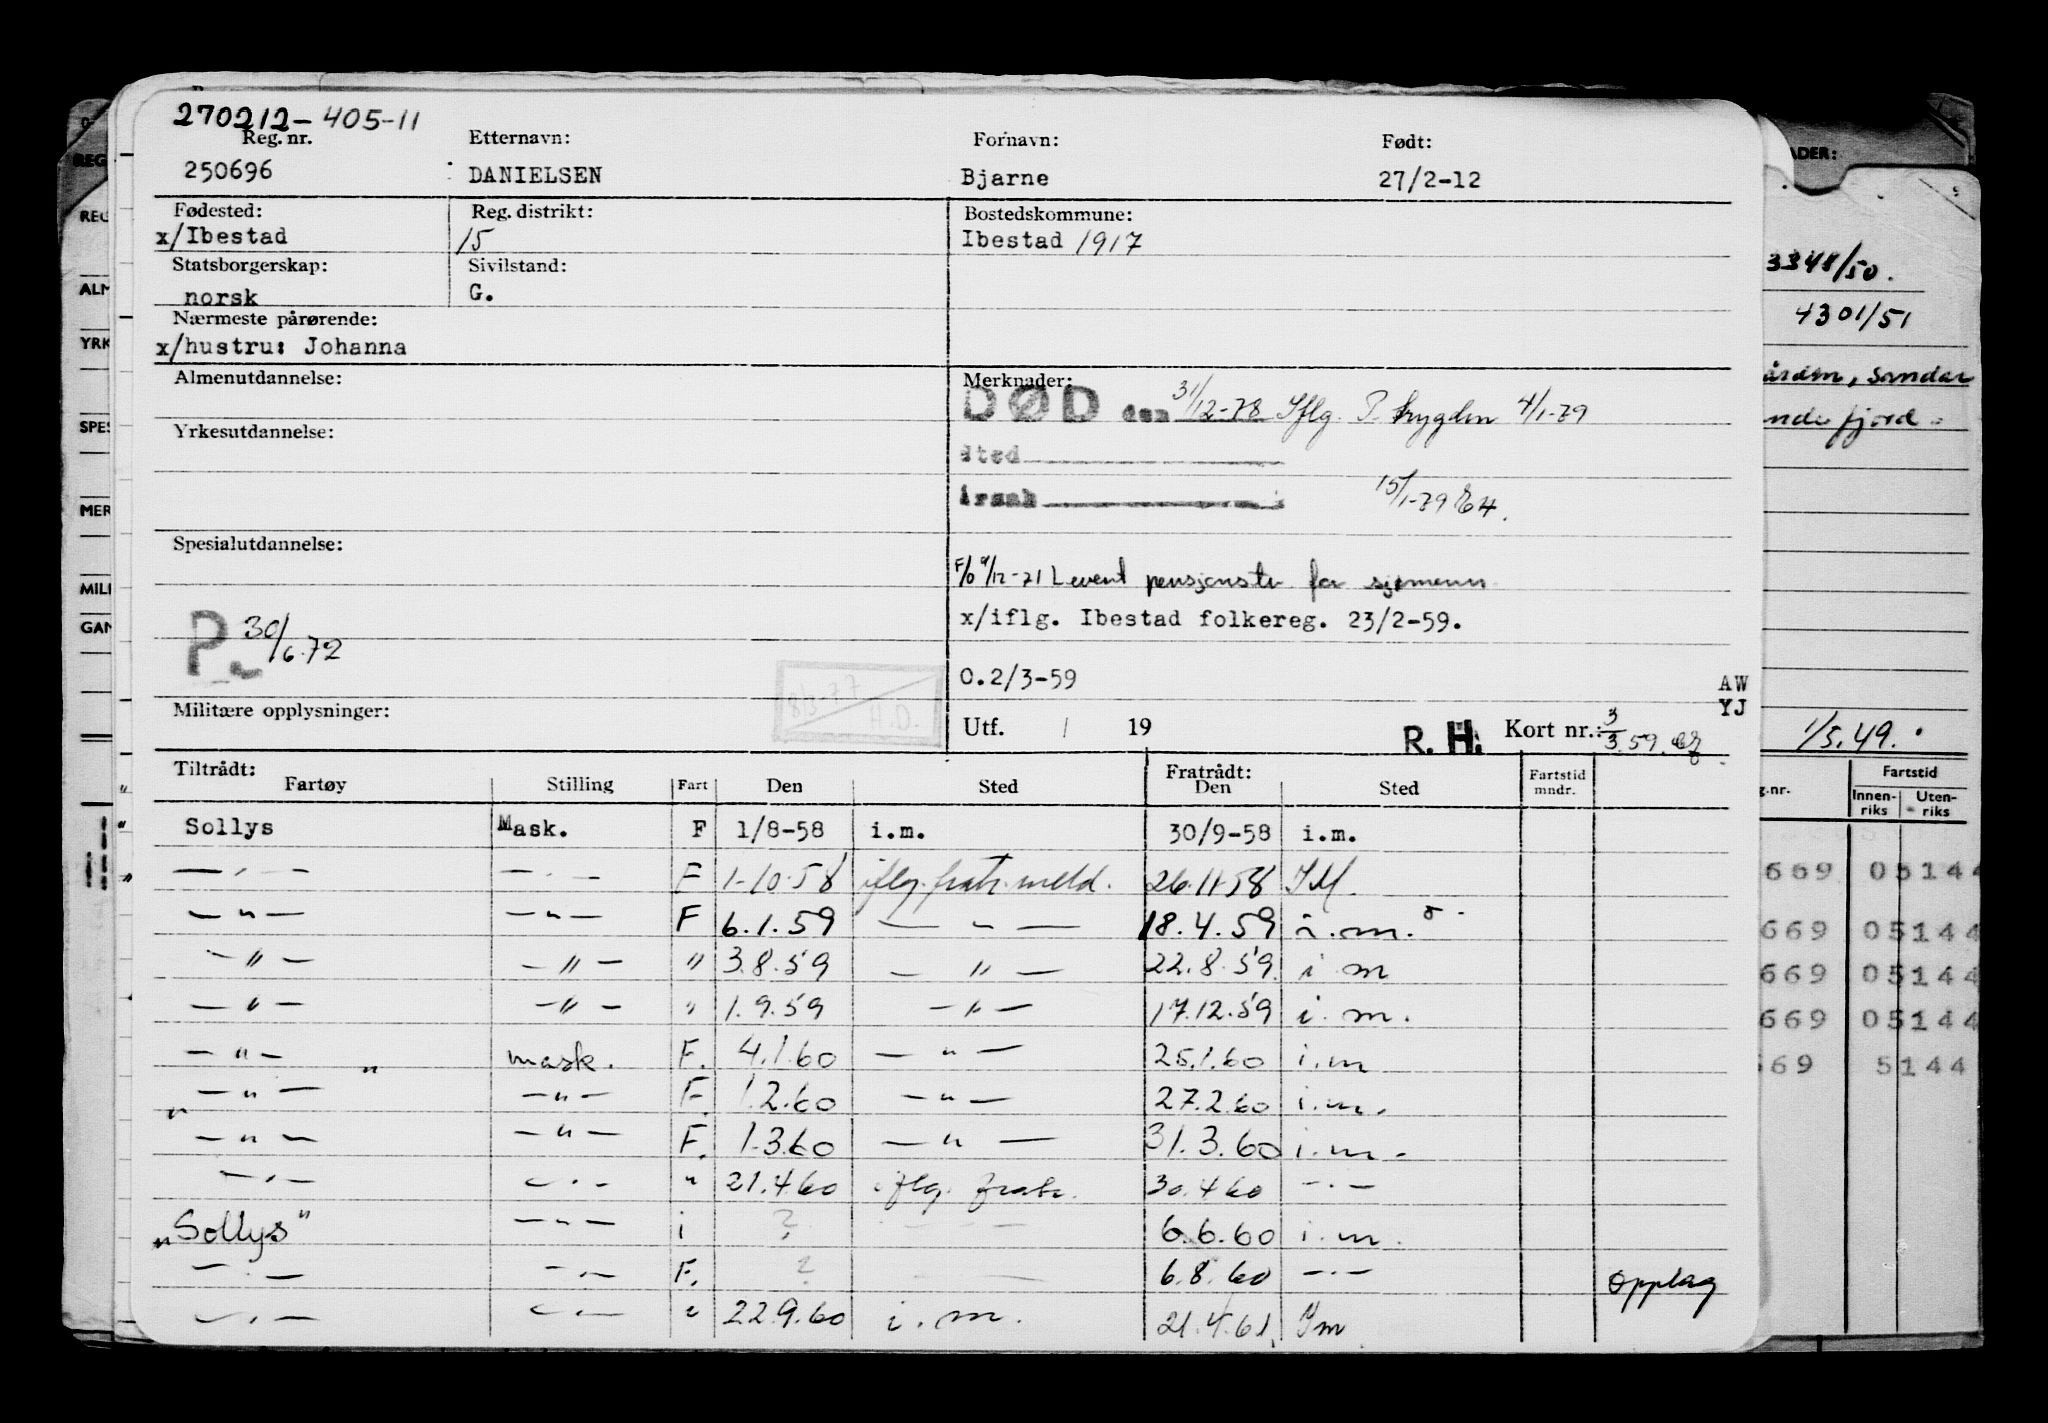 270212-405-11
Reg. nr. Etternavn: Fornavn: Født:
250696 DANIELSEN Bjarne 27/2-12
Fødested: Reg. distrikt: Bostedskommune:
x/Ibestad 15 Ibestad 1917
Statsborgerskap: Sivilstand:
norsk G.
Nærmeste pårørende:
x/hustru: Johanna
Almenutdannelse: Merknader:
DØD den 31/12-78 Iflg. P. trygden 4/1-79
Yrkesutdannelse:
sted
årsak 15/1-79
Spesialutdannelse:
pensjonstr. for sjømenn
x/iflg. Ibestad folkereg. 23/2-59.
P. 30/6.72
O.2/3-59
AW
YJ
Militære opplysninger: Utf. / 19 R. H. Kort nr.: 3/3.59.
8/3-77 H.D.
Tiltrådt: Fratrådt:
Fartøy Stilling Fart Den Sted Den Sted Fartstid mndr.
Sollys Mask. F 1/8-58 i.m. 30/9-58 i.m.
— " — — " — F 1-10-58 iflg. fratr. meld. 26.11.58 IM.
— " — — " — F 6.1.59 — " — 18.4.59 i.m.
— " — — " — " 3.8.59 — " — 22.8.59. i m
— " — — " — " 1.9.59 — " — 17.12.59 i.m.
— " — mask. F. 4.1.60 — " — 25.1.60 i.m
— " — — " — F. 1.2.60 — " — 27.2.60 i.m.
— " — — " — F. 1.3.60 — " — 31.3.60 i.m.
— " — — " — " 21.4.60 iflg. fratr. 30.4.60 — " —
"Sollys" — " — i ? 6.6.60 i.m.
— " — — " — F. ? 6.8.60 — " — Opplag
— " — — " — " 22.9.60 i.m. 21.4.61. Im
REG
REG
ALM
YRK
SPES
MER
MILI
GAN
ADER:
3348/50.
4301/51
, Sandar
1/5.49.
Fartstid
g.nr. Innen-riks Uten-riks
669 05144
669 05144
669 05144
669 05144
669 5144